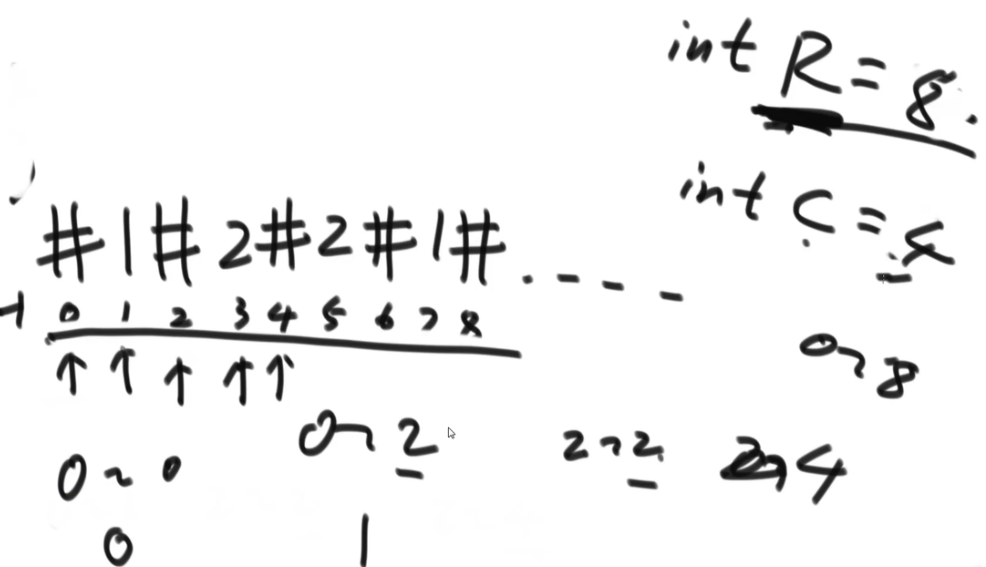 int R = 8.
int C = 4
# 1 # 2 # 2 # 1 # . - - -
-1 0 1 2 3 4 5 6 7 8
↑ ↑ ↑ ↑ ↑
0~8
0~2
2~2
2~4
0~0
0
1